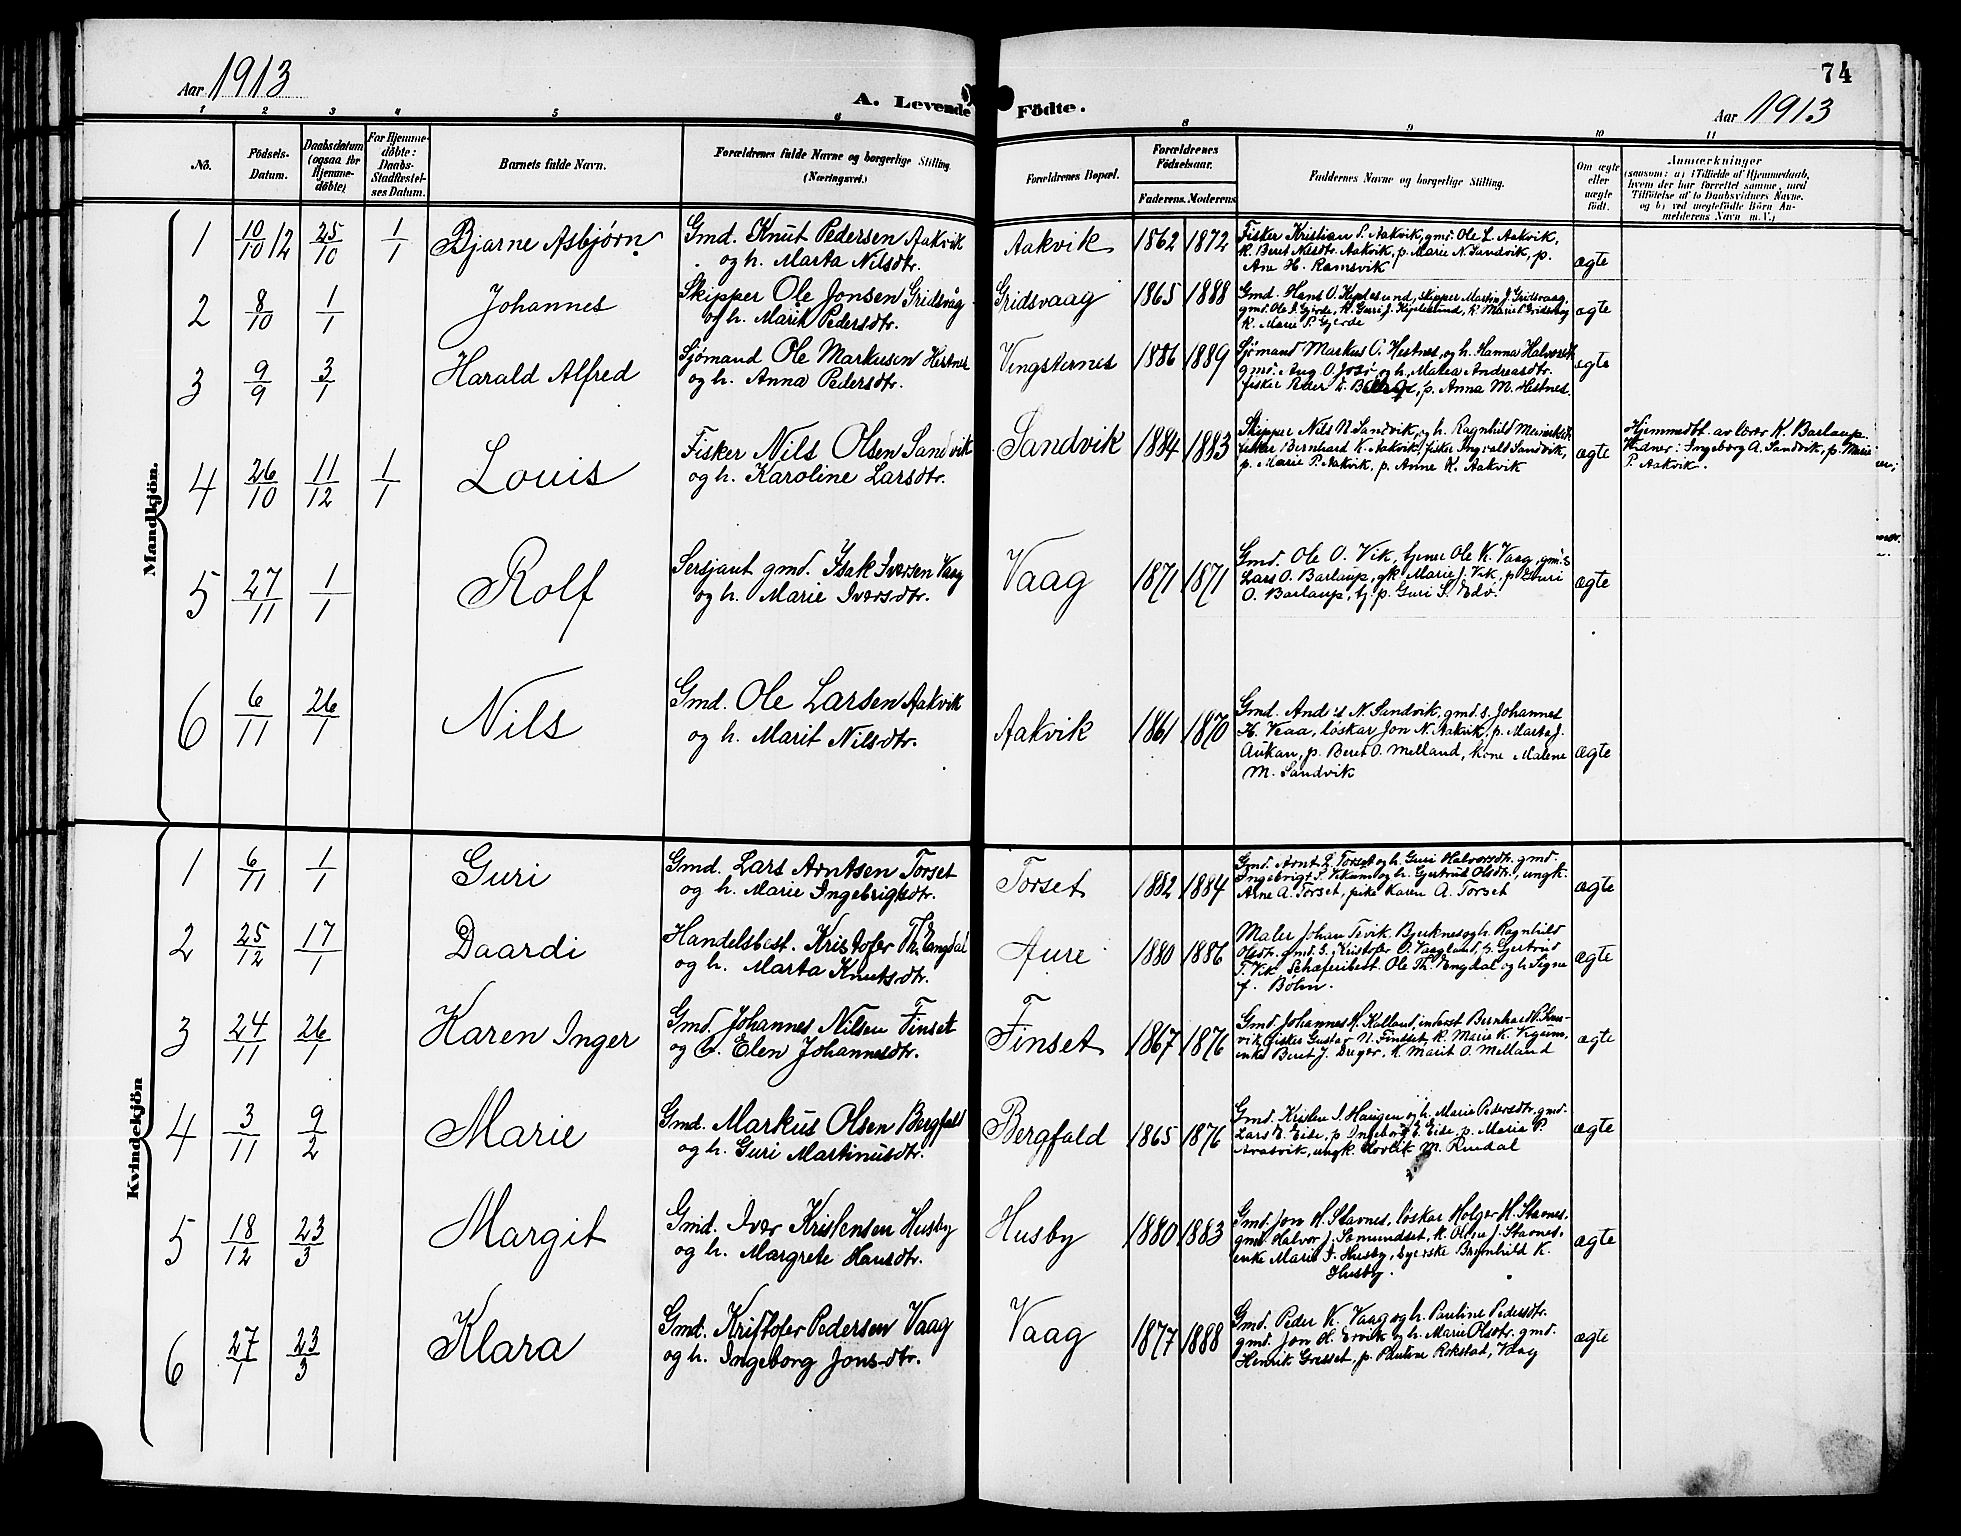 74
Aar 1913
A. Levende Födte.
Aar 1913
1 2 3 4 5 6 8 9 10 11
No.
Födsels-Datum.
Daabsdatum (ogsaa for Hjemmedöbte)
For Hjemmedöbte: Daabs-Stadfæstelses Datum.
Barnets fulde Navn.
Forældrenes fulde Navne og borgerlige Stilling (Næringsvei.)
Forældrenes Bopæl.
Forældrenes Födselsaar.
Faderens. Moderens
Faddernes Navne og borgerlige Stilling.
Om ægte eller uægte födt.
Anmærkninger
(saasom: a) i Tilfælde af Hjemmedaab,
hvem der har forrettet samme, med
Tilföielse af to Daabsvidners Navne.
og b) ved uegtefödte Börn An-
melderens Navn m. V.)
Mandkjön.
1 10/10 12 25/10 1/1 Bjarne Asbjørn
Gmd. Knut Pedersen Aakvik
og h. Marta Nilsdtr.
Aakvik 1862 1872
Fisker Kristian P. Aakvik, gmd. Ole L. Aakvik,
k. Beret Nilsdtr. Aakvik, p. Marie N. Sandvik, p.
Ane H. Ramsvik
ægte
2 8/10 1/1 Johannes
Skipper Ole Jonsen Gridsvåg
og h. Marit Pedersdtr.
Gridsvaag 1865 1888
Gmd. Hans O. skipper Martin J. Gridsvaag,
gmd. Ole I. Gjerde, k. Guri J. k. Marie
k. Marie P. Gjerde
ægte
3 9/9 3/1 Harald Alfred
Sjømand Ole Markusen Hestnes
og h. Anna Pedersdtr.
Vingsternes 1886 1889
Sjømand Markus O. Hestnes, og h. Hanna Halvorsdtr.
gmd. Aug. O. og h. Malea Andreasdtr.
fisker Peter p. Anna M. Hestnes.
ægte
4 26/10 11/12 1/1 Louis
Fisker Nils Olsen Sandvik
og h. Karoline Larsdtr.
Sandvik 1884 1883
Skipper Nils N. Sandvik, og h. Ragnhild
fisker Bernhard K. Aakvik, fisker Ingvald Sandvik,
p. Marie P. Aakvik, p. Anne K. Aakvik
ægte
Hjemmedbt. av lærer K. Barlaup.
Vidner: Ingeborg A. Sandvik, p. Marie
P. Aakvik.
5 27/11 1/1 Rolf
Sersjant gmd. Isak Iversen Vaag
og h. Marie Iversdtr.
Vaag 1871 1871
Gmd. Ole O. Vik, tjener Ole K. Vaag, gmds
Lars O. Barlaup, gk Marie J. Vik, p. Guri
O. Barlaup, tj. p. Guri S. Edv.
ægte
6 6/11 26/1 Nils
Gmd. Ole Larsen Aakvik
og h. Marit Nilsdtr.
Aakvik 1861 1870
Gmd. Anders N. Sandvik, gmd. s. Johannes
H. løskar Jon N. Aakvik, p. Marta J.
Aukan, p. Beret O. Melland, kone Malene
M. Sandvik
ægte
Kvindekjön
1 6/11 1/1 Guri
Gmd. Lars Arntsen Torset
og h. Marie Ingebrigtsdtr.
Torset 1882 1884
Gmd. Arnt L. Torset og h. Guri Halvorsdtr. gmd.
Ingebrigt og h. Gjertrud Olsdtr., ungk.
Arne A. Torset, pike Karen A. Torset
ægte
2 25/12 17/1 Daardi
Handelsbest. Kristofer Th. Engdal
og h. Marta Knutsdtr.
Aure 1880 1886
Maler Johan Tevik, Bjerknes og h. Ragnhild
Olsdtr. gmd. s. Kristofer O. Vaagland, tj. Gjertrud
T. Vik Schæferibest. Ole Th. Engdal og h. Signe
f. Bolin.
ægte
3 24/11 26/1 Karen Inger
Gmd. Johannes Nilsen Finset
og h. Elen Johannesdtr.
Finset 1867 1876
Gmd. Johannes H. Kalland, inderst Bernhard
vik, fisker Gustav N. Findset, k. Marie K.
enke Beret J. k. Marit O. Melland
ægte
4 3/11 9/2 Marie
Gmd. Markus Olsen Bergfald
og h. Guri Martinusdtr.
Bergfald 1865 1876
Gmd. Kristen I. Haugen og h. Marie Pedersdtr. gmd.
Lars E. Eide, p. Ingeborg E. Eide, p. Maria P.
Arasvik, ungk. M. Rindal
ægte
5 18/12 23/3 Margit
Gmd. Iver Kristensen Husby
og h. Margrete Hansdtr.
Husby 1880 1883
Gmd. Jon H. Stavnes, løskar Holger H. Stavnes,
gmd Halvor J. Semundset, k. Oline J. Stavnes,
enke Marie I. Husby, Brynhild K.
Husby.
ægte
6 27/1 23/3 Klara
Gmd. Kristofer Pedersen Vaag
og h. Ingeborg Jonsdtr.
Vaag 1877 1888
Gmd. Peder K. Vaag og h. Pauline Pedersdtr.
gmd. Jon O. Ervik og h. Marie Olsdtr. gmd.
Henrik Gresset, p. Pauline Rokstad, Vaag
ægte